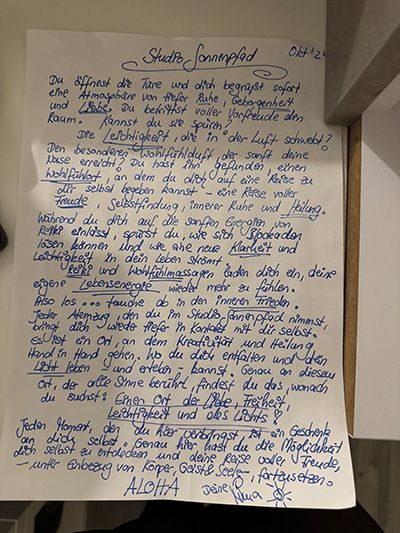 Studio Sonnenpfad
Okt '2
Du öffnest die Türe und dich begrüßt sofort
eine Atmosphäre von tiefer Ruhe, Geborgenheit
und Liebe. Du betrittst voller Vorfreude den
Raum. Kannst du sie spüren?
Die Leichtigkeit, die in der Luft schwebt?
Den besonderen Wohlfühlduft, der sanft deine
Nase erreicht? Du hast ihn gefunden, einen
Wohlfühlort, an dem du dich auf eine Reise zu
dir selbst begeben kannst - eine Reise voller
Freude, Selbstfindung, innerer Ruhe und Heilung.
Während du dich auf die sanften Energien von
Reiki einlässt, spürst du, wie sich Blockaden
lösen können und wie eine neue Klarheit und
Leichtigkeit in dein Leben strömt.
Reiki und Wohlfühlmassagen laden dich ein, deine
eigene Lebensenergie wieder mehr zu fühlen.
Also los ... tauche ab in den inneren Frieden.
Jeder Atemzug, den du im Studio Sonnenpfad nimmst,
bringt dich wieder tiefer in Kontakt mit dir selbst.
Es ist ein Ort, an dem Kreativität und Heilung
Hand in Hand gehen. Wo du dich entfalten und dein
Licht leben - und erleben - kannst. Genau an diesem
Ort, der alle Sinne berührt, findest du das, wonach
du suchst: Einen Ort der Liebe, Freiheit,
Leichtigkeit und des Lichts!
Jeden Moment, den du hier verbringst, ist ein Geschenk
an dich selbst. Genau hier hast du die Möglichkeit
dich selbst zu entdecken und deine Reise voller Freude,
- unter Einbezug von Körper, Geist & Seele -, fortzusetzen.
ALOHA Deine